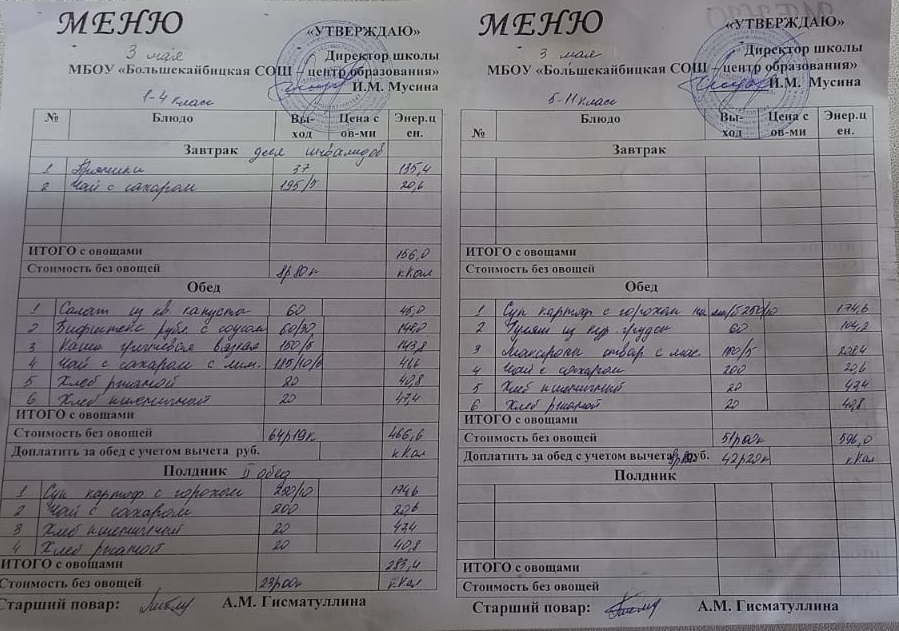 МЕНЮ
«УТВЕРЖДАЮ»
3 мая
Директор школы
МБОУ «Большекайбицкая СОШ – центр образования»
И.М. Мусина
1-4 класс
№ Блюдо Вы-ход Цена с ов-ми Энер.ц ен.
Завтрак для инвалидов
1 Пряники 37 135,4
2 Чай с сахаром 195/5 20,6
ИТОГО с овощами 156,0
Стоимость без овощей 8р80к кКал
Обед
1 Салат из кв. капусты 60 45,0
2 Бифштекс рубл. с соусом 60/30
3 Каша гречневая вязкая 150/5 143,8
4 Чай с сахаром с лим. 41,6
5 Хлеб ржаной 20 40,8
6 Хлеб пшеничный 20 47,4
ИТОГО с овощами
Стоимость без овощей 64р19к 466,6
Доплатить за обед с учетом вычета руб. кКал
Полдник II обед
1 Суп картоф с горохом 250/10 174,6
2 Чай с сахаром 200 20,6
3 Хлеб пшеничный 20 47,4
4 Хлеб ржаной 20 40,8
ИТОГО с овощами 283,4
Стоимость без овощей 23р00к кКал
Старший повар: А.М. Гисматуллина
МЕНЮ
«УТВЕРЖДАЮ»
3 мая
Директор школы
МБОУ «Большекайбицкая СОШ – центр образования»
И.М. Мусина
5-11 класс
№ Блюдо Вы-ход Цена с ов-ми Энер.ц ен.
Завтрак
ИТОГО с овощами
Стоимость без овощей
Обед
1 Суп картоф с горохом на 250/10 174,6
2 Гуляш из кур. грудки 60 104,2
3 Макароны отвар с мас. 150/5 208,4
4 Чай с сахаром 200 20,6
5 Хлеб пшеничный 20 47,4
6 Хлеб ржаной 20 40,8
ИТОГО с овощами
Стоимость без овощей 51р00к 596,0
Доплатить за обед с учетом вычета руб. 42р20к кКал
Полдник
ИТОГО с овощами
Стоимость без овощей
Старший повар: А.М. Гисматуллина